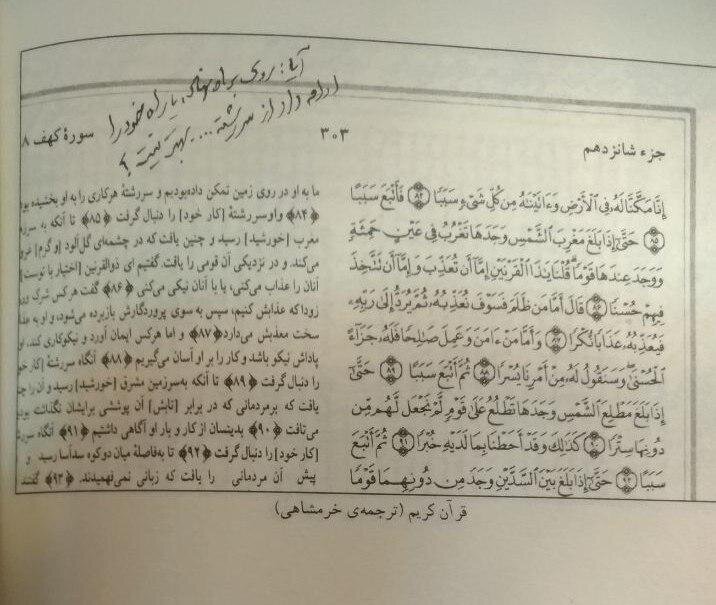 آیا: روی براه نهاد، یا راه خود را
ادامه داد از سررشته.... بهتر نیست؟
سورهٔ کهف ۱۸
۳۰۳
جزء شانزدهم
إِنَّا مَكَّنَّا لَهُۥ فِى ٱلْأَرْضِ وَءَاتَيْنَٰهُ مِن كُلِّ شَىْءٍ سَبَبًا ﴿٨٤﴾ فَأَتْبَعَ سَبَبًا
﴿٨٥﴾ حَتَّىٰٓ إِذَا بَلَغَ مَغْرِبَ ٱلشَّمْسِ وَجَدَهَا تَغْرُبُ فِى عَيْنٍ حَمِئَةٍ
وَوَجَدَ عِندَهَا قَوْمًا قُلْنَا يَٰذَا ٱلْقَرْنَيْنِ إِمَّآ أَن تُعَذِّبَ وَإِمَّآ أَن تَتَّخِذَ
فِيهِمْ حُسْنًا ﴿٨٦﴾ قَالَ أَمَّا مَن ظَلَمَ فَسَوْفَ نُعَذِّبُهُۥ ثُمَّ يُرَدُّ إِلَىٰ رَبِّهِۦ
فَيُعَذِّبُهُۥ عَذَابًا نُّكْرًا ﴿٨٧﴾ وَأَمَّا مَنْ ءَامَنَ وَعَمِلَ صَٰلِحًا فَلَهُۥ جَزَآءً
ٱلْحُسْنَىٰ وَسَنَقُولُ لَهُۥ مِنْ أَمْرِنَا يُسْرًا ﴿٨٨﴾ ثُمَّ أَتْبَعَ سَبَبًا ﴿٨٩﴾ حَتَّىٰٓ
إِذَا بَلَغَ مَطْلِعَ ٱلشَّمْسِ وَجَدَهَا تَطْلُعُ عَلَىٰ قَوْمٍ لَّمْ نَجْعَل لَّهُم مِّن
دُونِهَا سِتْرًا ﴿٩٠﴾ كَذَٰلِكَ وَقَدْ أَحَطْنَا بِمَا لَدَيْهِ خُبْرًا ﴿٩١﴾ ثُمَّ أَتْبَعَ
سَبَبًا ﴿٩٢﴾ حَتَّىٰٓ إِذَا بَلَغَ بَيْنَ ٱلسَّدَّيْنِ وَجَدَ مِن دُونِهِمَا قَوْمًا
ما به او در روی زمین تمکن داده‌بودیم و سررشتهٔ هرکاری را به او بخشیده
﴿۸۴﴾ و او سررشتهٔ [کار خود] را دنبال گرفت ﴿۸۵﴾ تا آنکه به
مغرب [خورشید] رسید و چنین یافت که در چشمه‌ای گل‌آلود [و گرم]
می‌کند. و در نزدیکی آن قومی را یافت. گفتیم ای ذوالقرنین [اختیار با توست]
آنان را عذاب می‌کنی، یا با آنان نیکی می‌کنی ﴿۸۶﴾ گفت هرکس شرک
زودا که عذابش کنیم، سپس به سوی پروردگارش بازبرده می‌شود، و او به
سخت معذبش می‌دارد ﴿۸۷﴾ و اما هرکس ایمان آورد و نیکوکاری کند،
پاداش نیکو باشد و کار را بر او آسان می‌گیریم ﴿۸۸﴾ آنگاه سررشتهٔ [کار
را دنبال گرفت ﴿۸۹﴾ تا آنکه به سرزمین مشرق [خورشید] رسید و آن را
یافت که بر مردمانی که در برابر [تابش] آن پوششی برایشان نگذاشته
می‌تافت ﴿۹۰﴾ بدینسان از کار و بار او آگاهی داشتیم ﴿۹۱﴾ آنگاه
[کار خود] را دنبال گرفت ﴿۹۲﴾ تا به فاصلهٔ میان دو کوه سدآسا رسید و
پیش آن مردمانی را یافت که زبانی نمی‌فهمیدند. ﴿۹۳﴾ گفتند
قرآن کریم (ترجمه‌ی خرمشاهی)